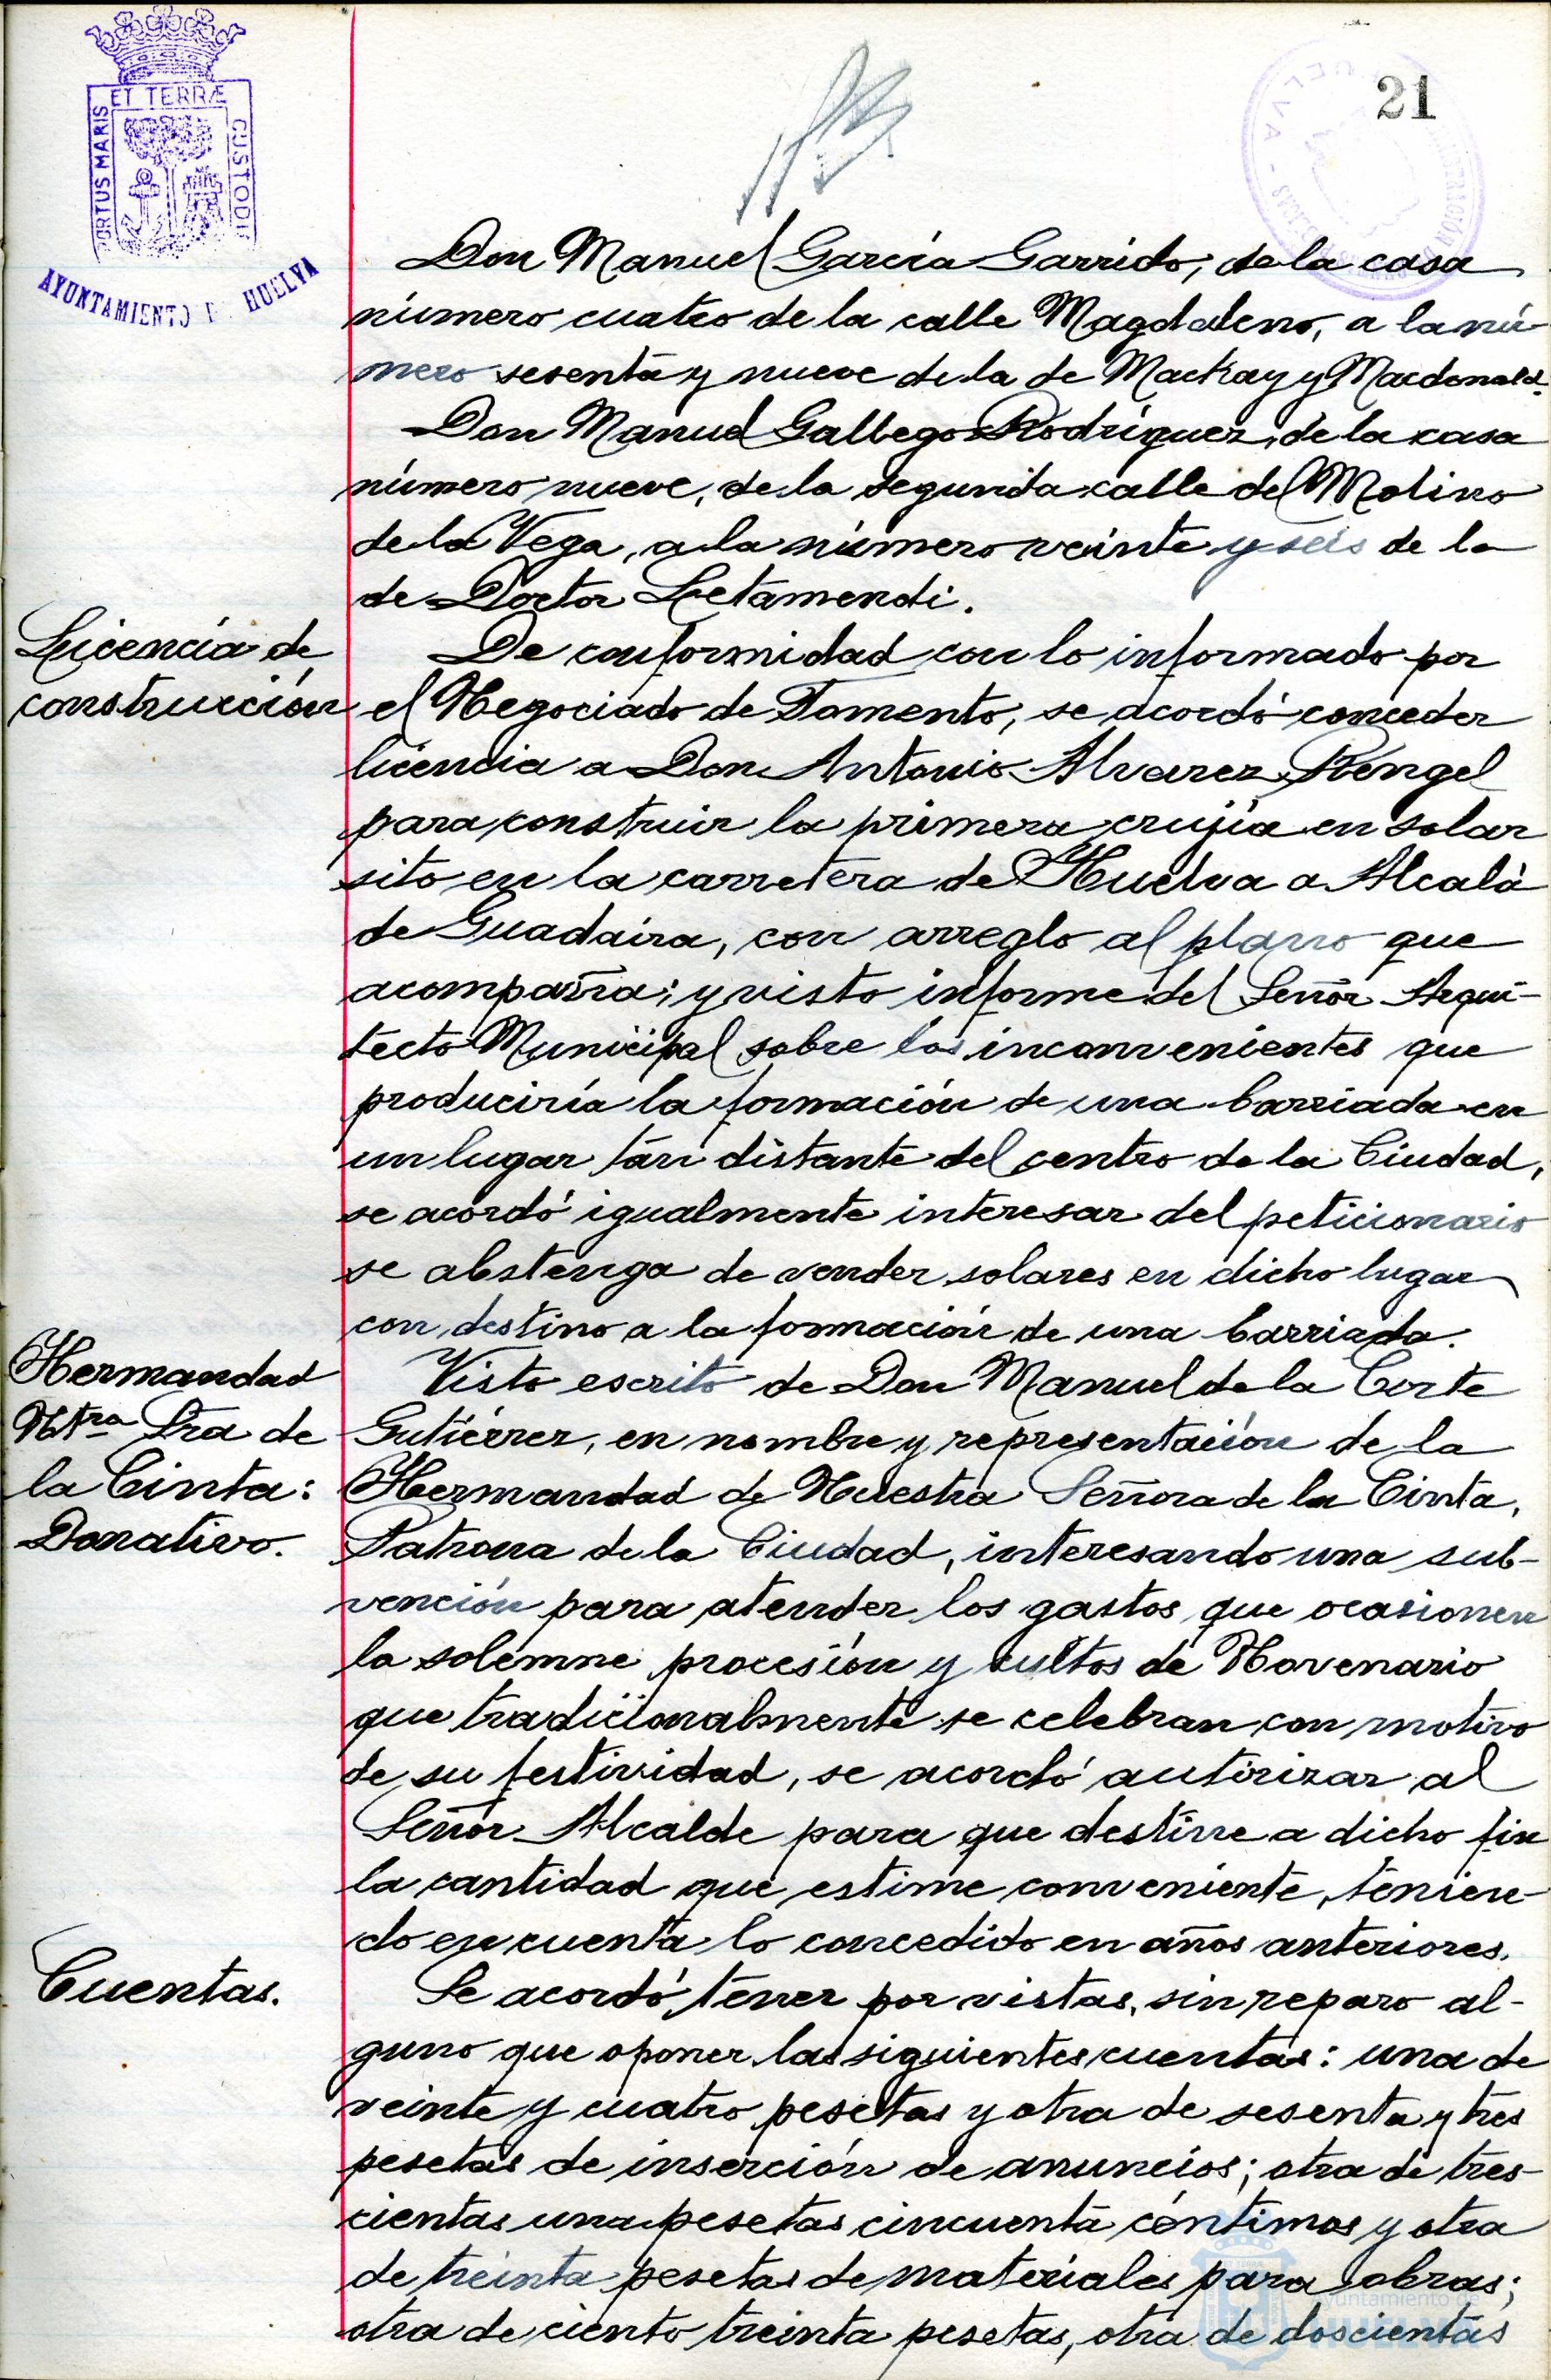 21
PORTUS MARIS
ET TERRÆ
CUSTODI
AYUNTAMIENTO HUELVA
Don Manuel García Garrido, de la casa
número cuatro de la calle Magdaleno, a la nú-
mero sesenta y nueve de la de Mackay y Macdonald.
Don Manuel Gallego Rodríguez, de la casa
número nueve, de la segunda calle del Molino
de la Vega, a la número veinte y seis de la
de Doctor Letamendi.
Licencia de
construcción
De conformidad con lo informado por
el Negociado de Fomento, se acordó conceder
licencia a Don Antonio Alvarez Rengel
para construir la primera crujía en solar
sito en la carretera de Huelva a Alcalá
de Guadaira, con arreglo al plano que
acompaña; y visto informe del Señor Arqui-
tecto Municipal sobre los inconvenientes que
produciría la formación de una barriada en
un lugar tan distante del centro de la Ciudad,
se acordó igualmente interesar del peticionario
se abstenga de vender solares en dicho lugar
con destino a la formación de una barriada.
Hermandad
Ntra Sra de
la Cinta:
Donativo.
Visto escrito de Don Manuel de la Corte
Gutiérrez, en nombre y representación de la
Hermandad de Nuestra Señora de la Cinta,
Patrona de la Ciudad, interesando una sub-
vención para atender los gastos que ocasionen
la solemne procesión y cultos de Novenario
que tradicionalmente se celebran con motivo
de su festividad, se acordó autorizar al
Señor Alcalde para que destine a dicho fin
la cantidad que estime conveniente, tenien-
do en cuenta lo concedido en años anteriores.
Cuentas.
Se acordó tener por vistas, sin reparo al-
guno que oponer las siguientes cuentas: una de
veinte y cuatro pesetas y otra de sesenta y tres
pesetas de inserción de anuncios; otra de tres-
cientas una pesetas cincuenta céntimos y otra
de treinta pesetas de materiales para obras;
otra de ciento treinta pesetas, otra de doscientas
Ayuntamiento de
HUELVA